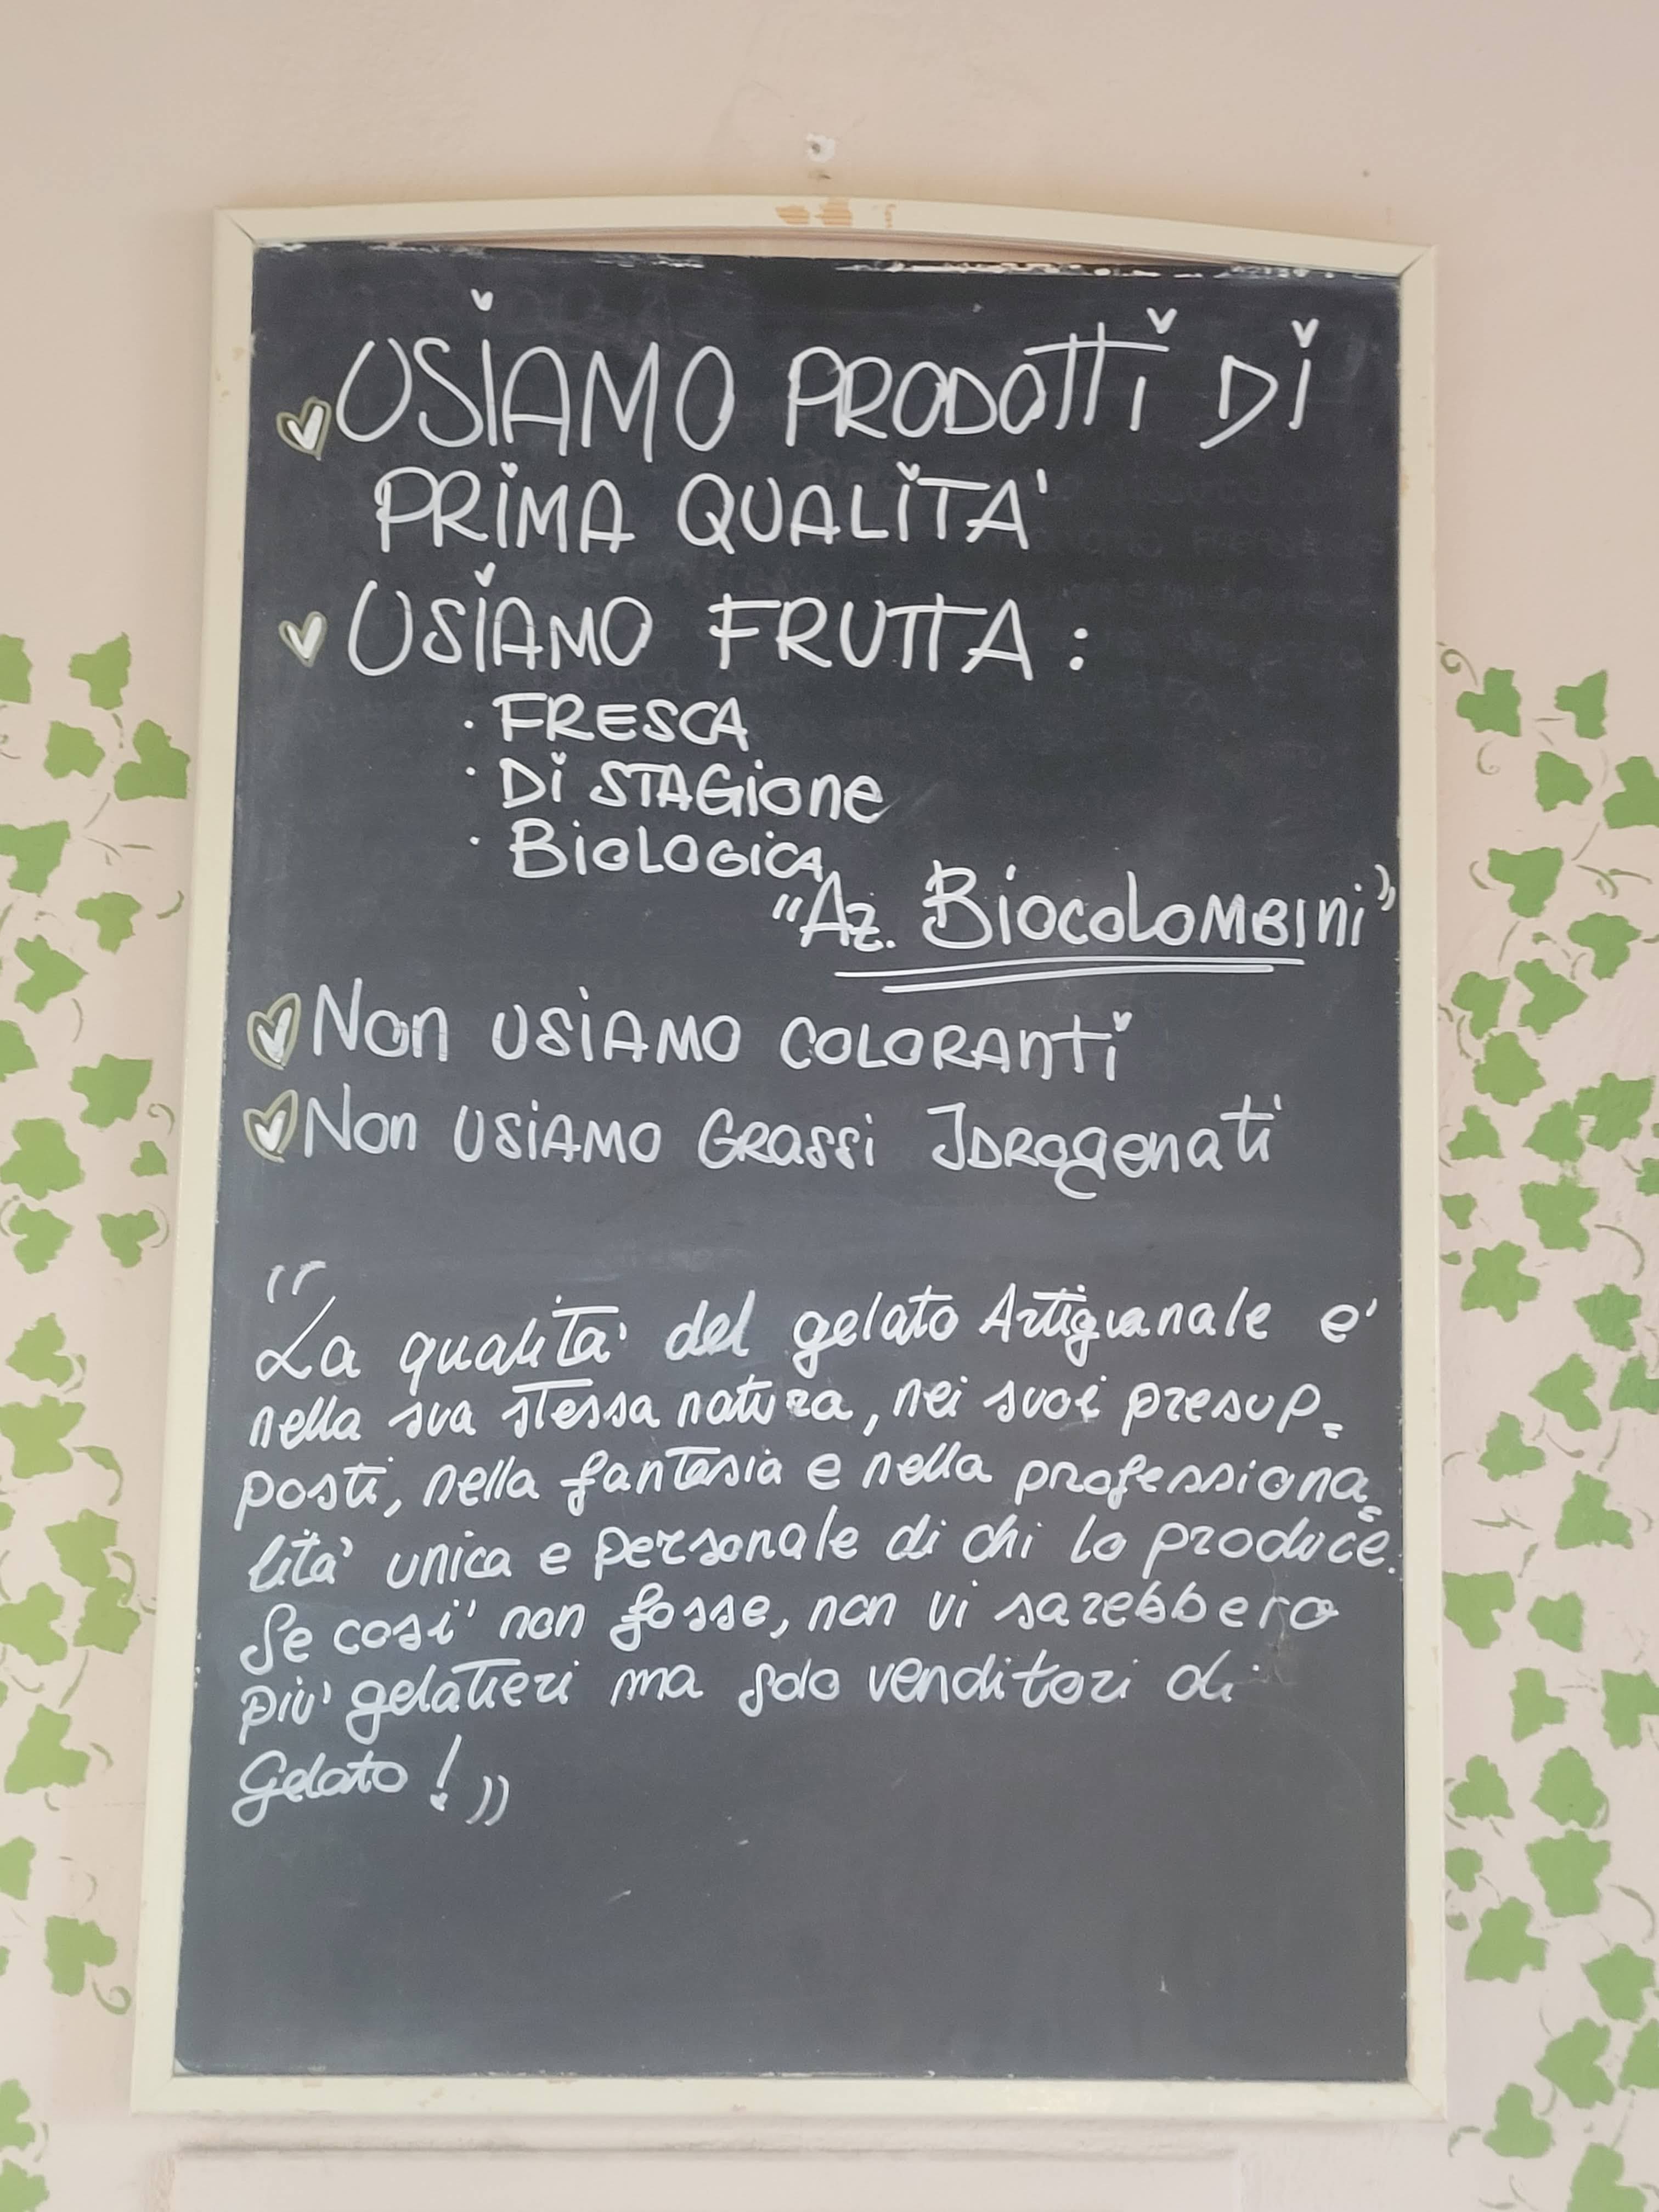 USiAMO PRODOTTi Di
PRiMA QUALiTA'
USiAMO FRUTTA :
· FRESCA
· Di STAGione
· BiOLOGiCA
"Az. BiocoloMBini"
Non USiAMO COLORAnti
Non USiAMO GRassi IDROgenati
"La qualita' del gelato Artigianale e'
nella sua stessa natura, nei suoi presup=
posti, nella fantasia e nella professiona=
lita' unica e personale di chi lo produce.
Se cosi' non fosse, non vi sarebbero
piu' gelatieri ma solo venditori di
Gelato !"